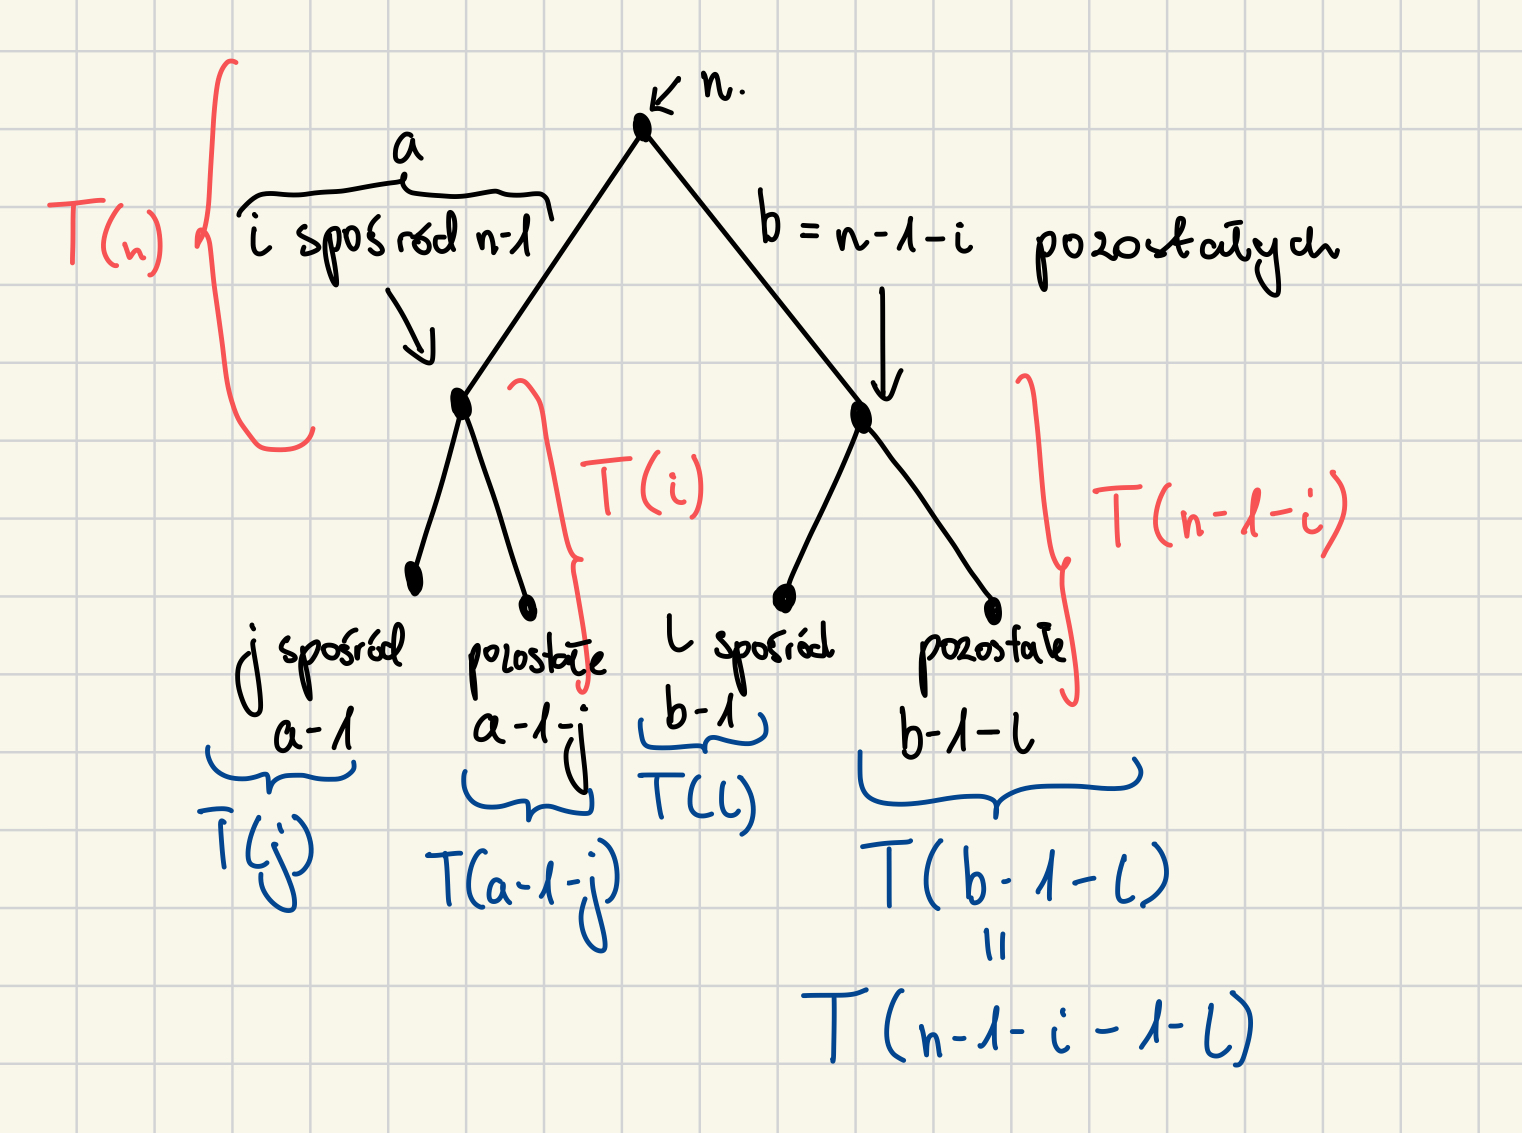 n.
a
T(n)
i spośród n-1
b = n-1-i pozostałych
T(i)
T(n-1-i)
j spośród
a-1
pozostałe
a-1-j
l spośród
b-1
pozostałe
b-1-l
T(j)
T(a-1-j)
T(l)
T(b-1-l)
=
T(n-1-i-1-l)